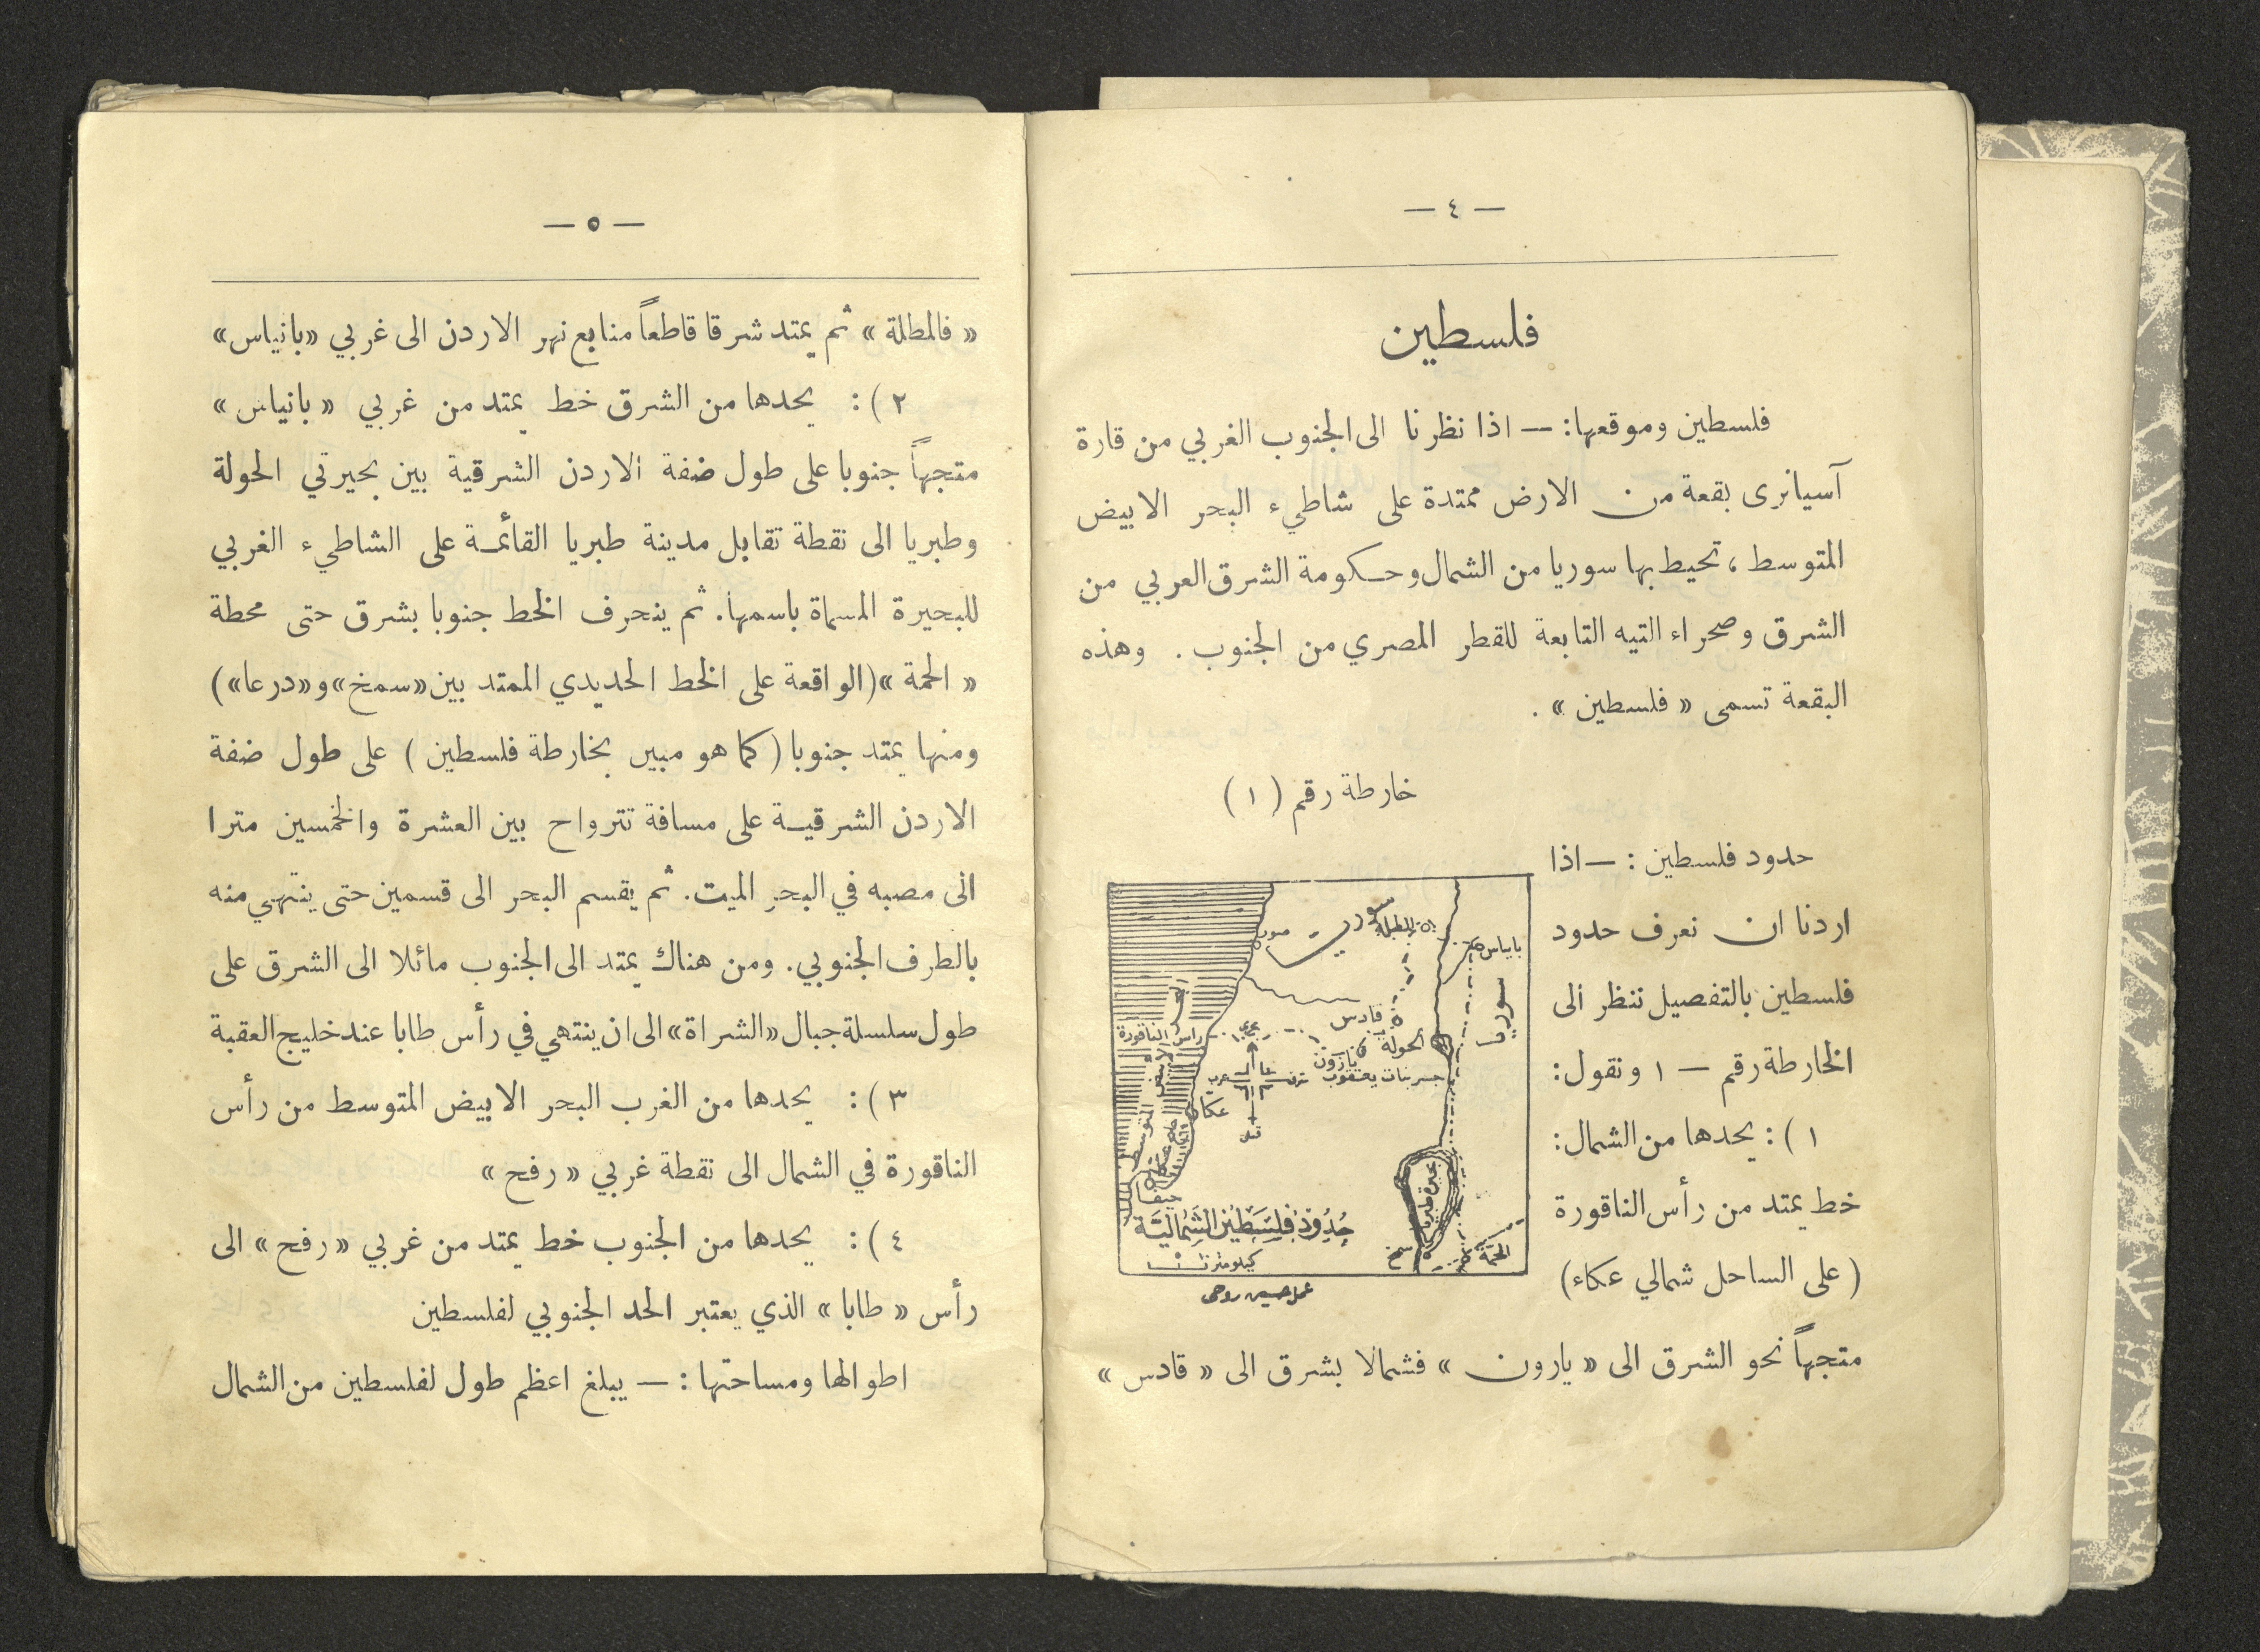 — ٤ —
فلسطين
فلسطين وموقعها: — اذا نظرنا الى الجنوب الغربي من قارة
آسيا نرى بقعة من الارض ممتدة على شاطيء البحر الابيض
المتوسط ، تحيط بها سوريا من الشمال وحكومة الشرق العربي من
الشرق وصحراء التيه التابعة للقطر المصري من الجنوب . وهذه
البقعة تسمى « فلسطين » .
خارطة رقم ( ١ )
حدود فلسطين : — اذا
اردنا ان نعرف حدود
فلسطين بالتفصيل ننظر الى
الخارطة رقم — ١ ونقول :
١ ) : يحدها من الشمال :
خط يمتد من رأس الناقورة
( على الساحل شمالي عكاء )
متجهاً نحو الشرق الى « يارون » فشمالا بشرق الى « قادس »
سوريا
المطلة
صور
بانياس
سوريا
قادس
الحولة
يارون
جسر بنات يعقوب
راس الناقورة
البحر الابيض المتوسط
بحري
شرق
غرب
عكا
حيفا
بحيرة طبريا
سمخ
الحمة
حُدُودُ فِلِسْطِيْنَ الشَّمَالِيَّة
كيلومتر
عمل حسين روحي
— ٥ —
« فالمطلة » ثم يمتد شرقا قاطعاً منابع نهر الاردن الى غربي «بانياس»
٢ ) : يحدها من الشرق خط يمتد من غربي « بانياس »
متجهاً جنوبا على طول ضفة الاردن الشرقية بين بحيرتي الحولة
وطبريا الى نقطة تقابل مدينة طبريا القائمة على الشاطيء الغربي
للبحيرة المسماة باسمها . ثم ينحرف الخط جنوبا بشرق حتى محطة
« الحمة » (الواقعة على الخط الحديدي الممتد بين «سمخ» و«درعا»)
ومنها يمتد جنوبا ( كما هو مبين بخارطة فلسطين ) على طول ضفة
الاردن الشرقية على مسافة تترواح بين العشرة والخمسين مترا
الى مصبه في البحر الميت . ثم يقسم البحر الى قسمين حتى ينتهي منه
بالطرف الجنوبي . ومن هناك يمتد الى الجنوب مائلا الى الشرق على
طول سلسلة جبال «الشراة» الى ان ينتهي في رأس طابا عند خليج العقبة
٣ ) : يحدها من الغرب البحر الابيض المتوسط من رأس
الناقورة في الشمال الى نقطة غربي « رفح »
٤ ) : يحدها من الجنوب خط يمتد من غربي « رفح » الى
رأس « طابا » الذي يعتبر الحد الجنوبي لفلسطين
اطوالها ومساحتها : — يبلغ اعظم طول لفلسطين من الشمال